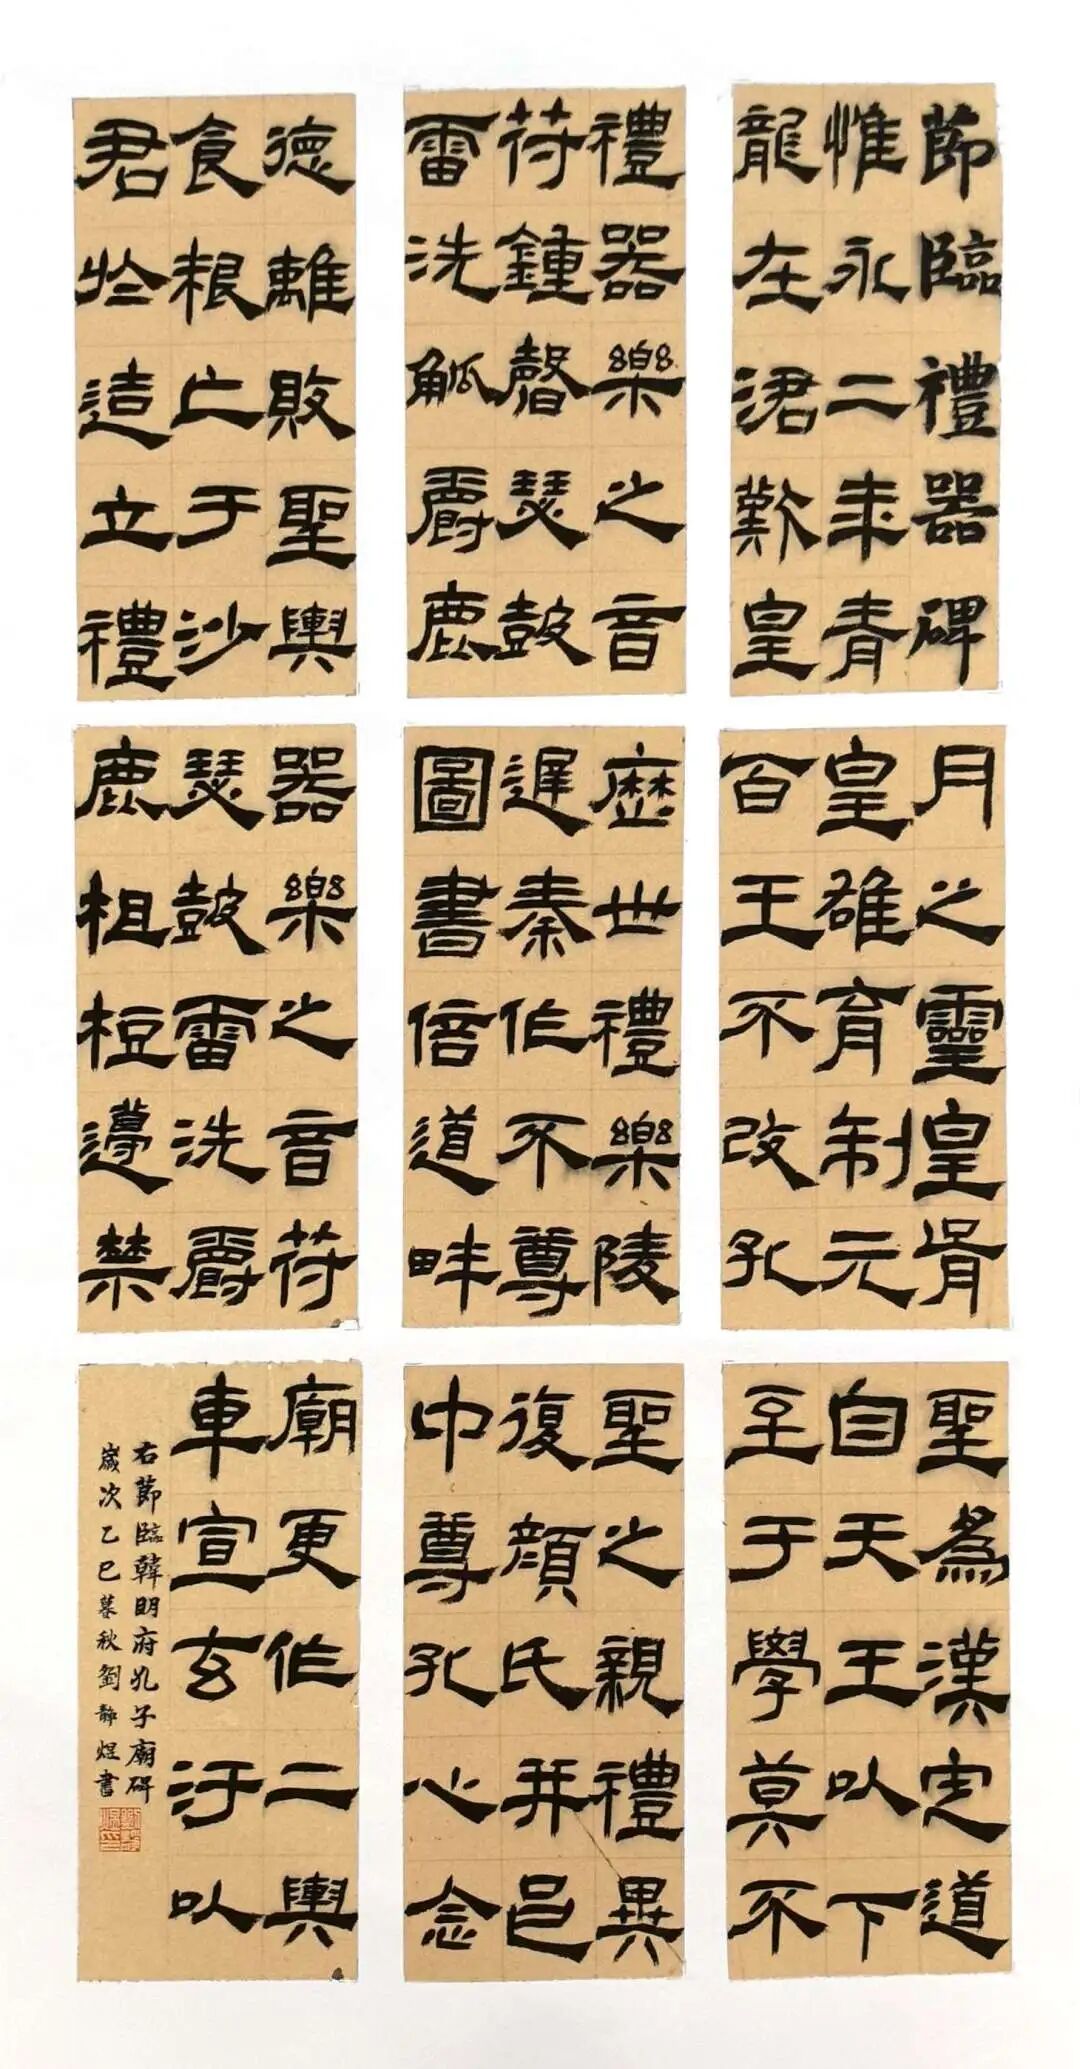 節臨禮器碑
惟永二年青
龍在涒歎皇
月之靈皇胥
皇雄育制元
百王不改孔
聖為漢定道
自天王以下
至于學莫不
禮器樂之音
符鍾磬瑟鼓
雷洗觚爵鹿
歷世禮樂陵
遲秦作不尊
圖書倍道畔
聖之親禮異
復顏氏并邑
中尊孔心念
德離敗聖輿
食根亡于沙
君於造立禮
器樂之音符
瑟鼓雷洗爵
鹿柤梪籩禁
廟更作二輿
車宣玄汙以
右節臨韓明府孔子廟碑
歲次乙巳暮秋劉靜煜書